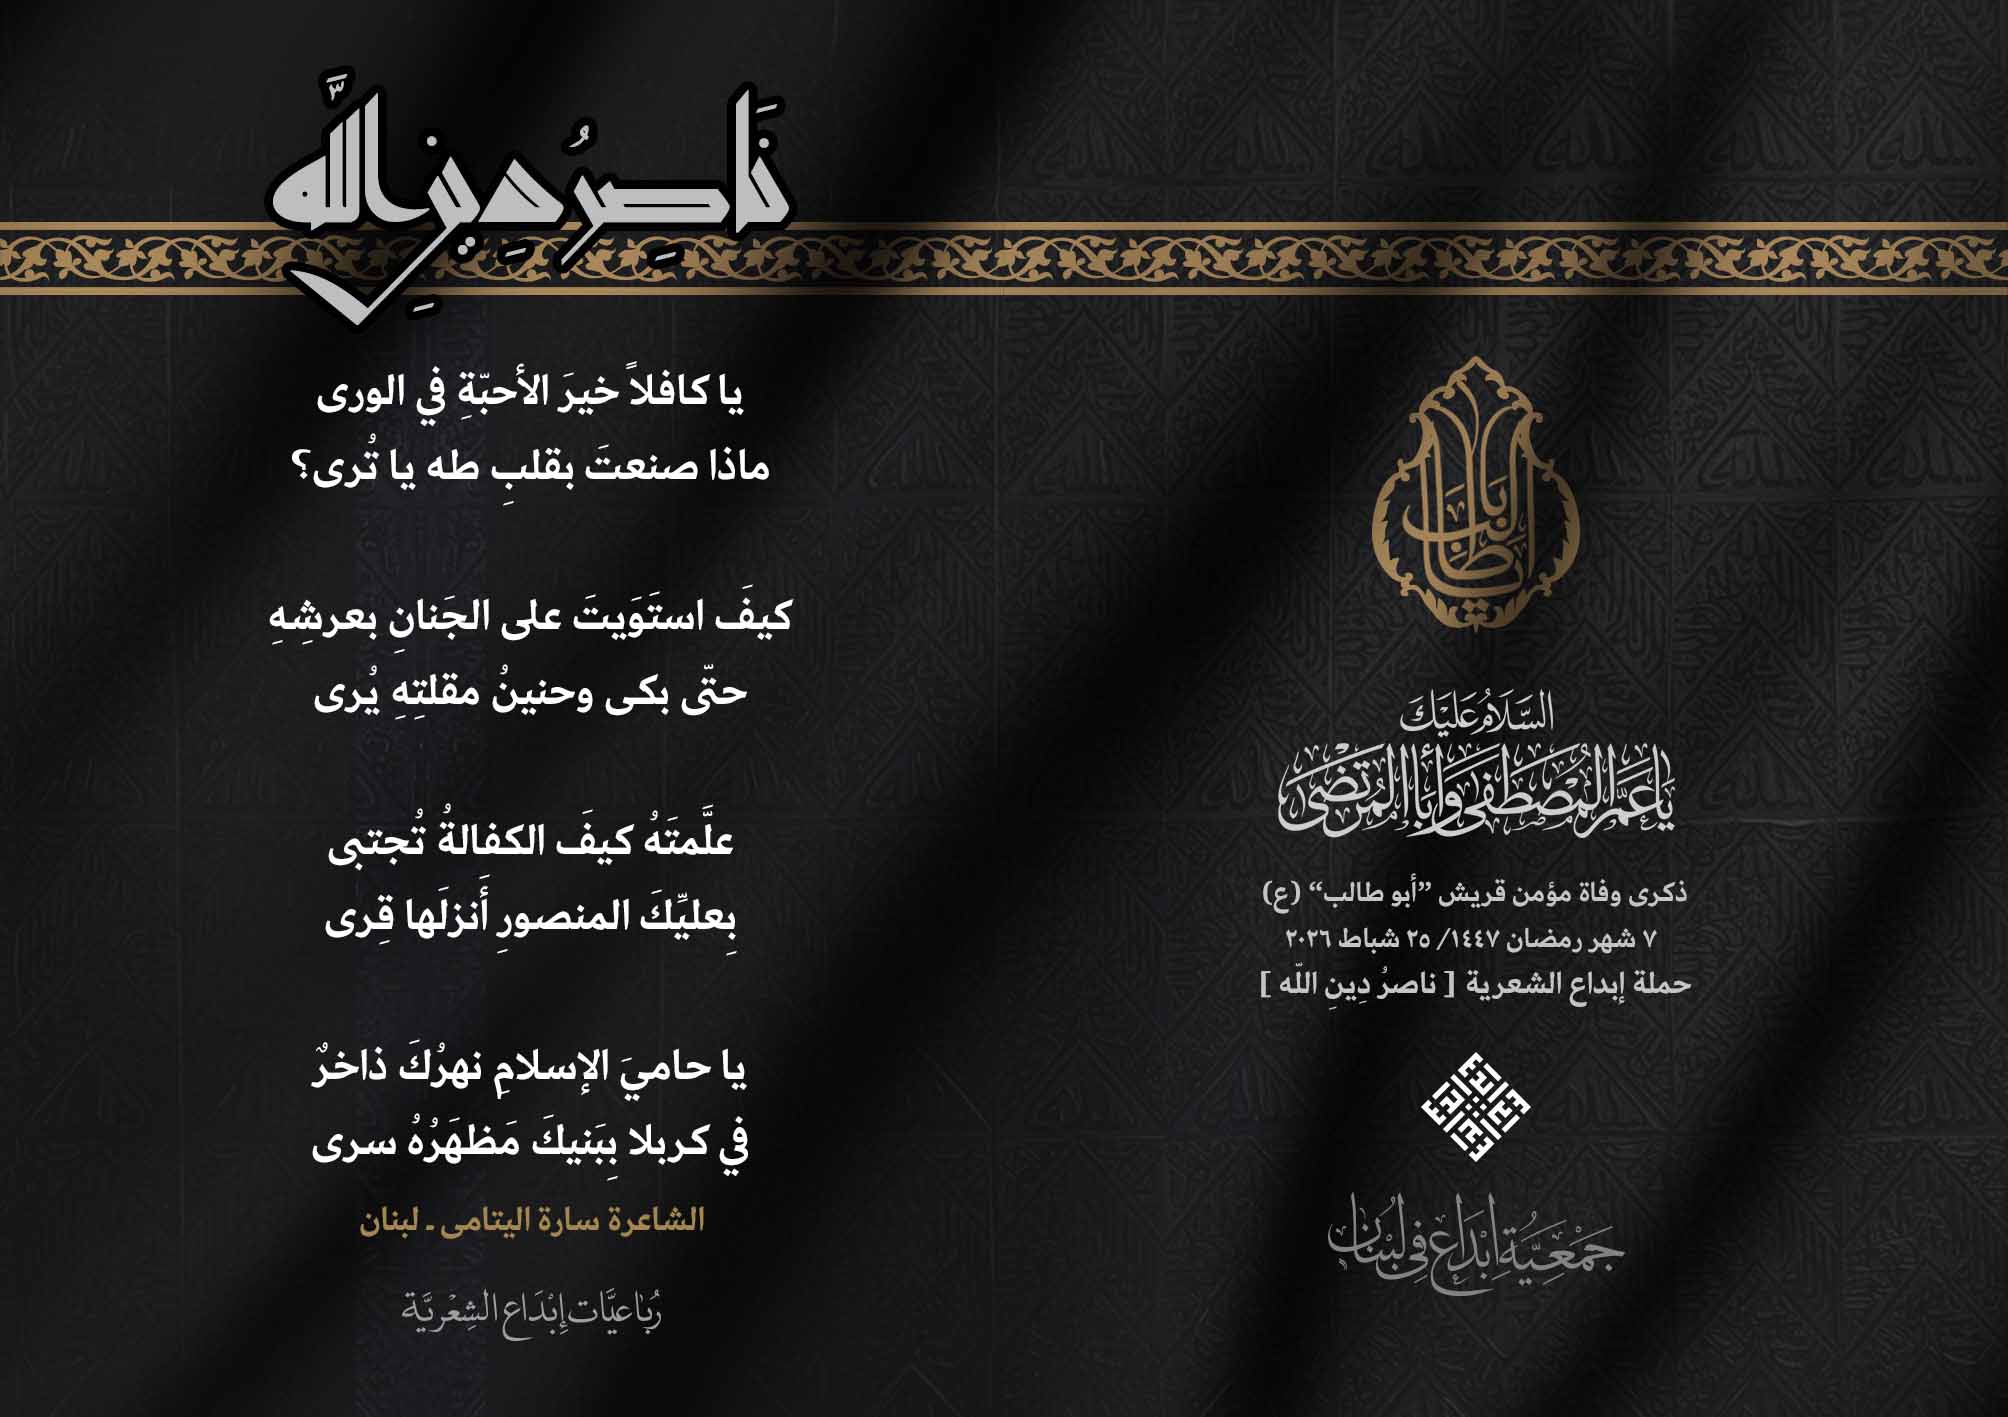 نَاصِرُ دِينِ اللَّه
يا كافلاً خيرَ الأحبّةِ في الورى
ماذا صنعتَ بقلبِ طه يا تُرى؟
كيفَ استَوَيتَ على الجَنانِ بعرشِهِ
حتّى بكى وحنينُ مقلتِهِ يُرى
علَّمتَهُ كيفَ الكفالةُ تُجتبى
بِعليِّكَ المنصورِ أَنزلَها قِرى
يا حاميَ الإسلامِ نهرُكَ ذاخرٌ
في كربلا بِبَنيكَ مَظهَرُهُ سرى
الشاعرة سارة اليتامى - لبنان
رُبَاعيَّات إِبْدَاع الشِعْريَّة
يَا أبَا طَالِب
السَّلَامُ عَلَيْكَ
يَا عَمَّ الْمُصْطَفَى وَأَبَا الْمُرْتَضَى
ذكرى وفاة مؤمن قريش ”أبو طالب“ (ع)
٧ شهر رمضان ١٤٤٧/ ٢٥ شباط ٢٠٢٦
حملة إبداع الشعرية [ ناصرُ دِينِ اللّه ]
جَمْعِيَّةِ إِبْدَاع فِي لُبْنَان